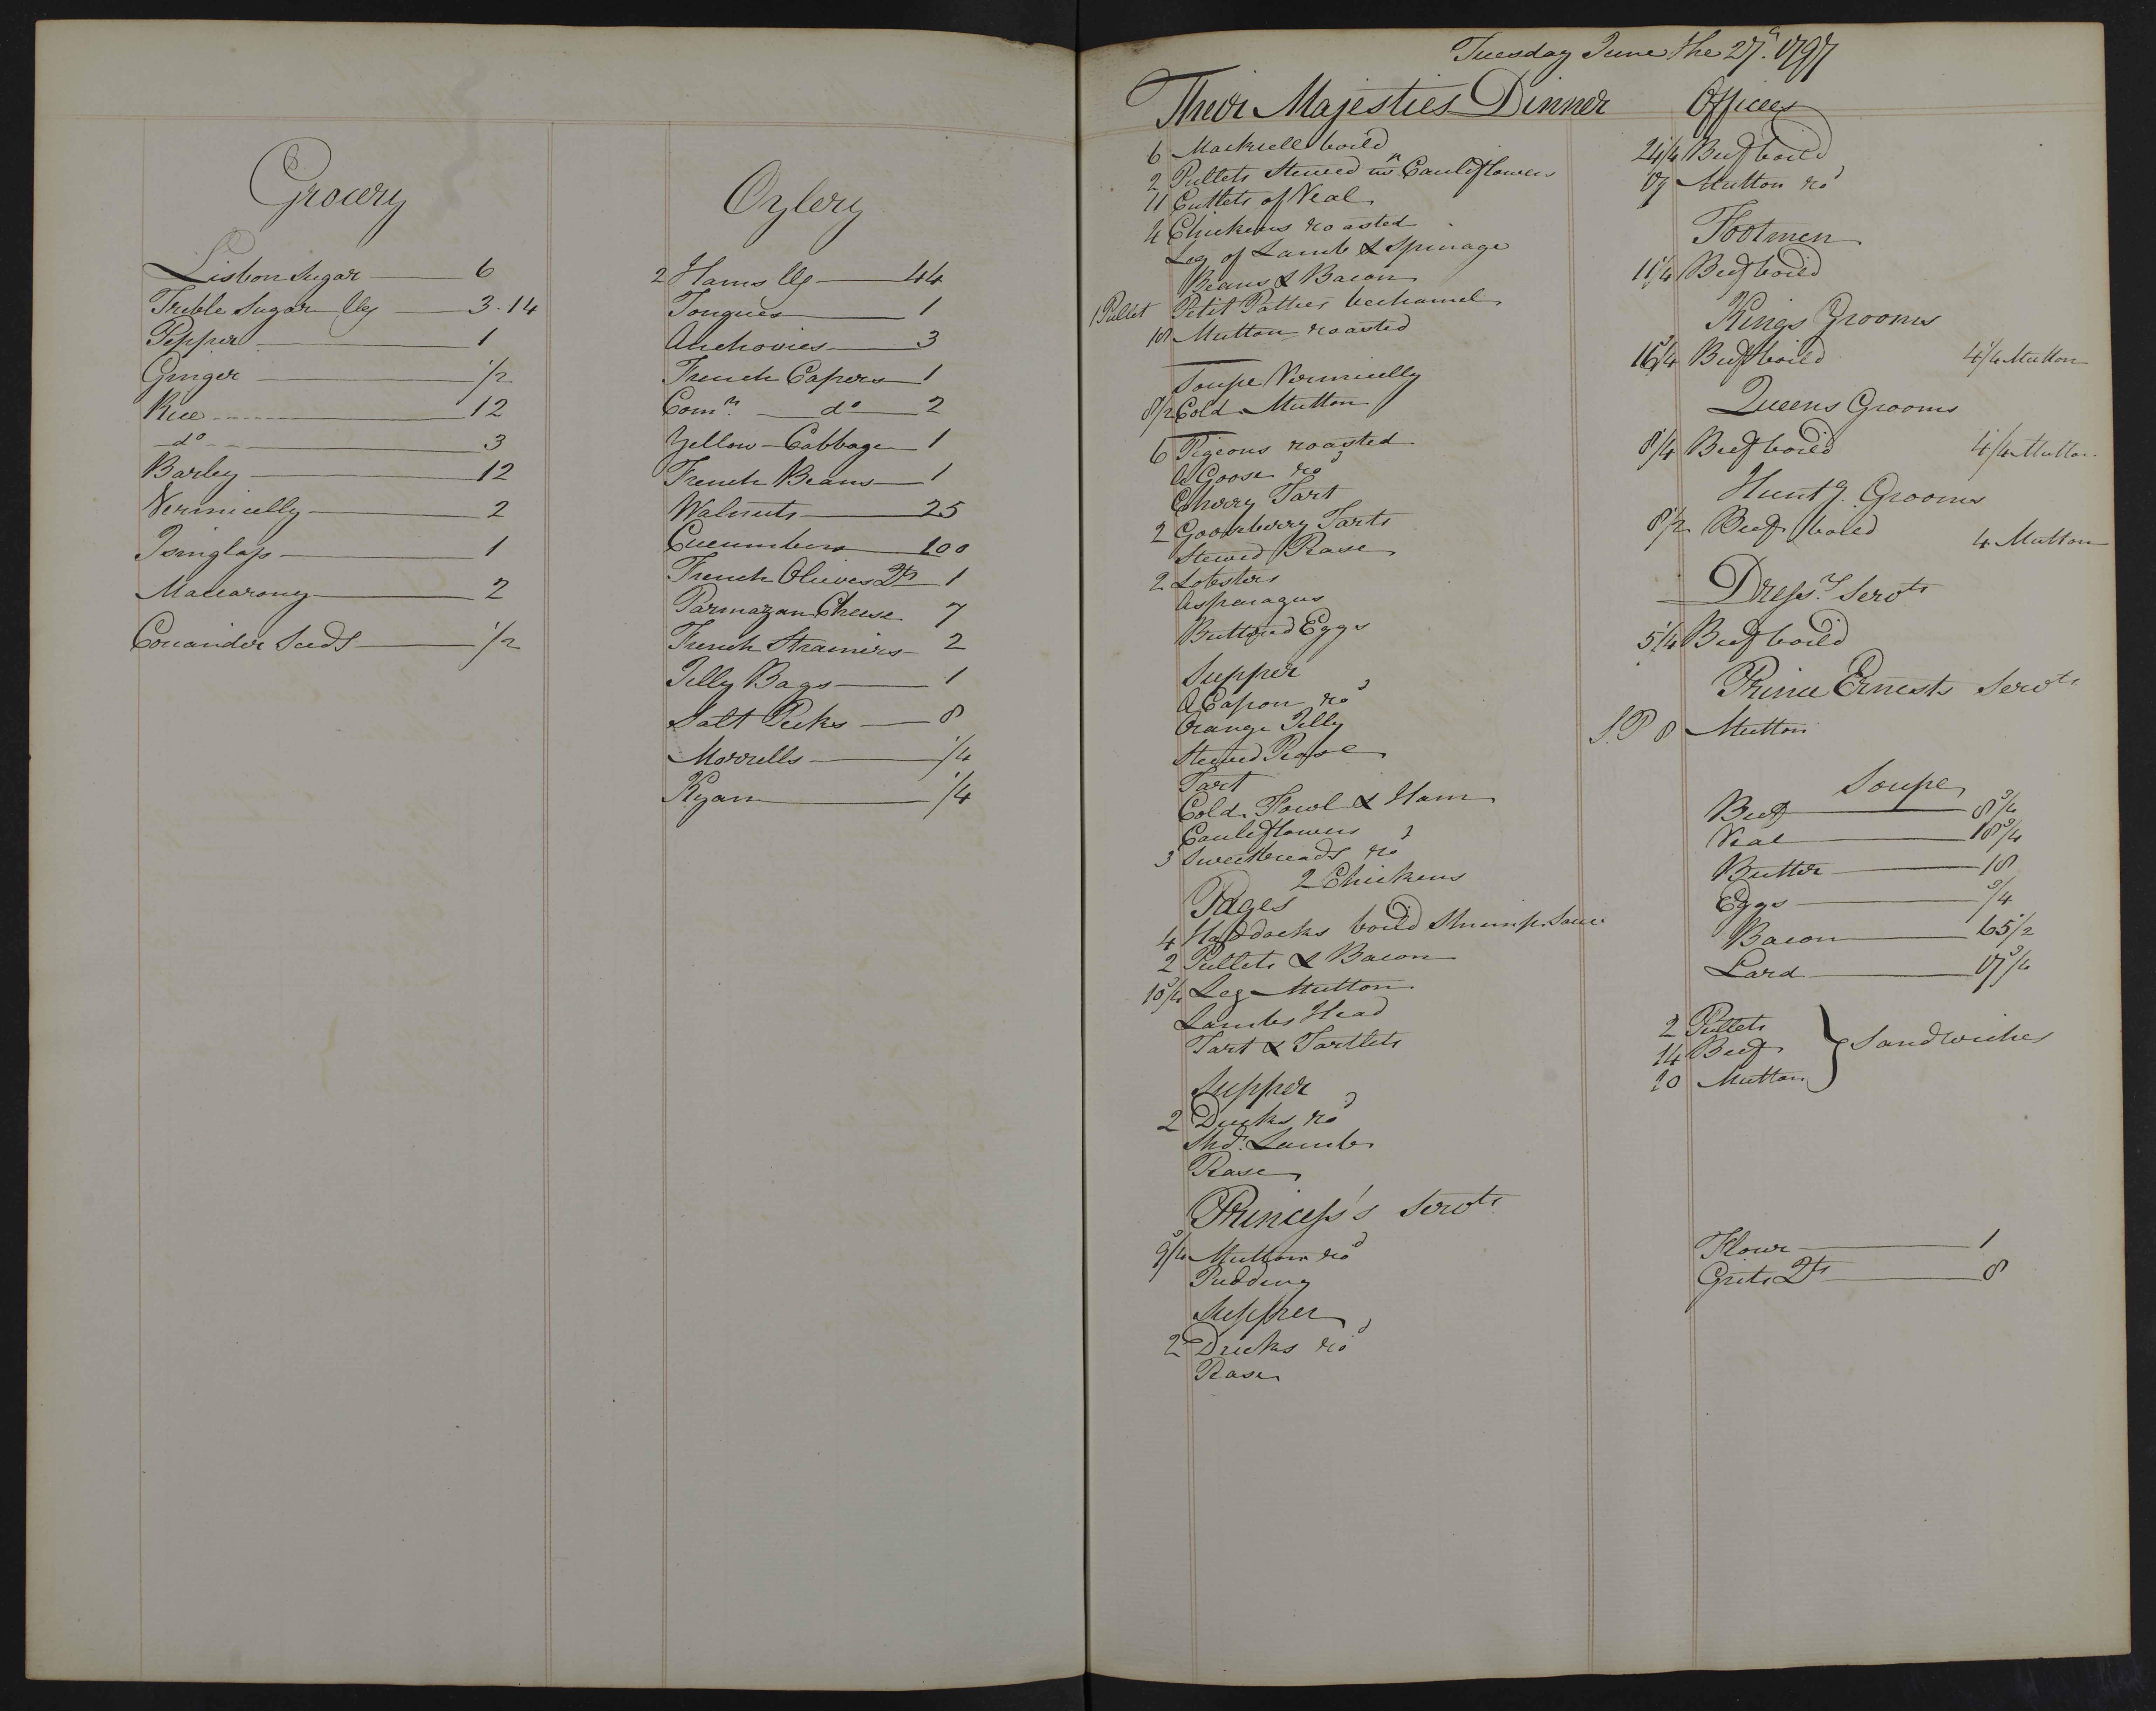 Grocery
Lisbon Sugar 6
Treble Sugar lbs 3.14
Pepper 1
Ginger 1/2
Rice 12
do 3
Barley 12
Vermicelly 2
Isinglass 1
Maccarony 2
Coriander Seeds 1/2
Oylery
2 Hams lbs 44
Tongues 1
Anchovies 3
French Capers 1
Comn. do 2
Yellow Cabbage 1
French Beans 1
Walnuts 25
Cucumbers 100
French Olives Qts 1
Parmazan Cheese 7
French Strainers 2
Jelly Bags 1
Salt Peeks 8
Morrells 1/4
Kyan 1/4
Tuesday June the 27th. 1797
Their Majesties Dinner
6 Mackrell boild
2 Pullets Stewed wn Cauliflowers
11 Cutlets of Veal
4 Chickens roasted
Leg of Lamb & Spinage
Beans & Bacon
1 Pullet Petit Patties bechamel
18 Mutton roasted
Soupe Vermicelly
8 1/2 Cold Mutton
6 Pigeons roasted
A Goose rod
Cherry Tart
2 Gooseberry Tarts
Stewed Pease
2 Lobsters
Asparagus
Butterd Eggs
Supper
A Capon rod
Orange Jelly
Stewed Pease
Tart
Cold Fowl & Ham
Cauliflowers
3 Sweetbreads rod
2 Chickens
Pages
4 Haddocks boild Shrimp Sauce
2 Pullets & Bacon
10 3/4 Leg Mutton
Lambs Head
Tart & Tartlets
Supper
2 Ducks rod
Shdr. Lamb
Pease
Princess's Servts
9 3/4 Mutton rod
Pudding
Supper
2 Ducks rod
Pease
Offices
24 1/4 Beef boild
17 Mutton rod
Footmen
11 1/4 Beef boild
Kings Grooms
16 3/4 Beef boild 4 1/4 Mutton
Queens Grooms
8 1/4 Beef boild 4 1/4 Mutton
Huntg. Grooms
8 1/2 Beef boild 4 Mutton
Dressrs Servts
5 1/4 Beef boild
Prince Ernests Servts
S.P 8 Mutton
Soupe
Beef 8 3/4
Veal 18 3/4
Butter 18
Eggs 3/4
Bacon 65 1/2
Lard 17 3/4
2 Pullets
14 Beef } Sandwiches
20 Mutton
Flour 1
Grits Qts 8